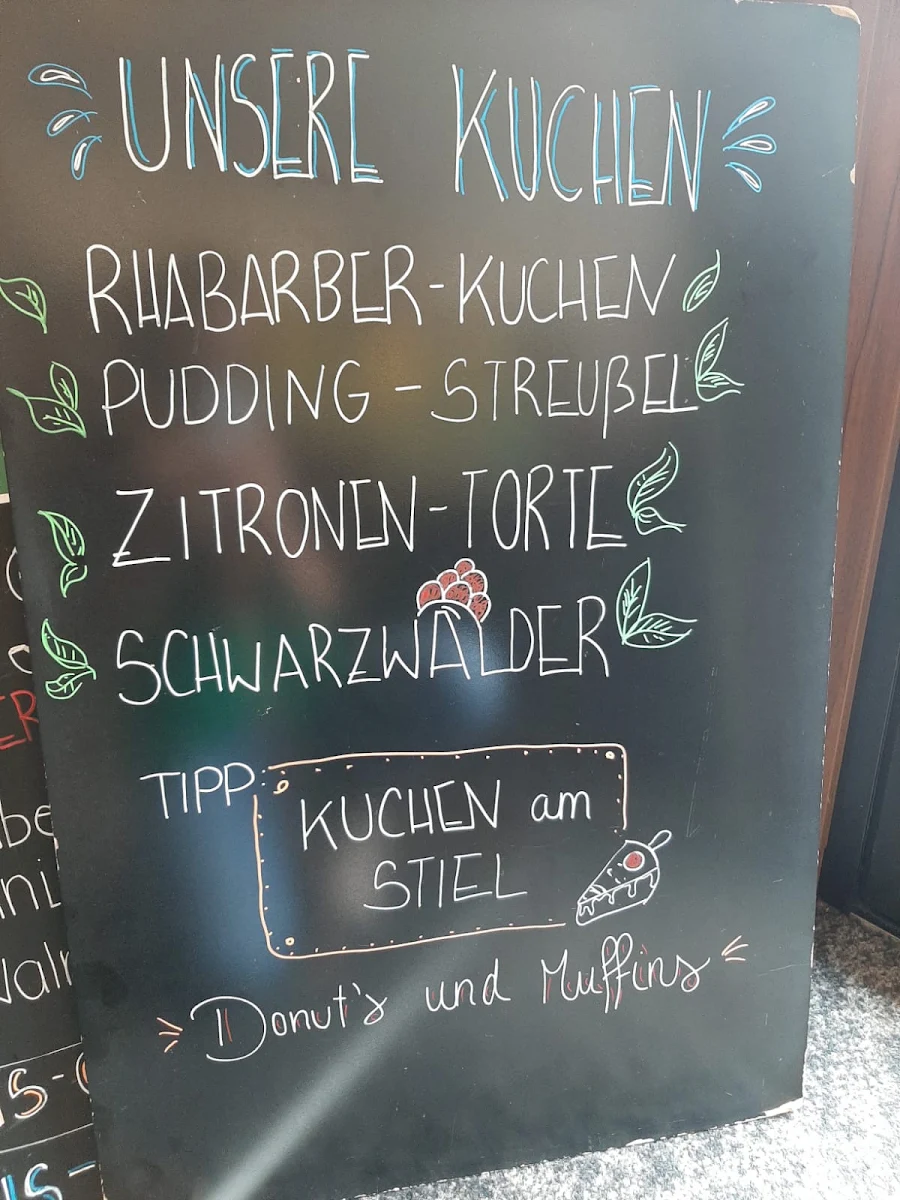 UNSERE KUCHEN
RHABARBER-KUCHEN
PUDDING-STREUßEL
ZITRONEN-TORTE
SCHWARZWÄLDER
TIPP:
KUCHEN am
STIEL
Donut's und Muffins